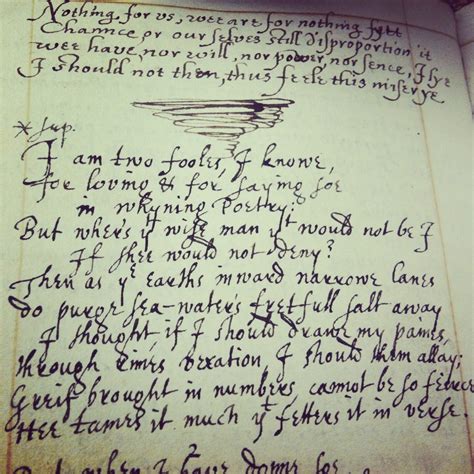 Nothing, for us, wee are for nothing fytt
Channce, or our selves still disproportion it
wee have nor will, nor power, nor sence, I lye
I should not then, thus feele this miserye
* sup.
I am two fooles, I knowe,
for loving & for saying soe
in whyning Poetry:
But wher's yt wise man yt would not be I
If shee would not deny?
Then as ye earths inward narrowe lanes
do purge sea-waters fretfull salt away
I thought, if I should drawe my paines,
through rimes vexation, I should them allay;
Greif brought in numbers, cannot be so feirce
Hee tames it much yt fetters it in verse.
But when I have donne soe